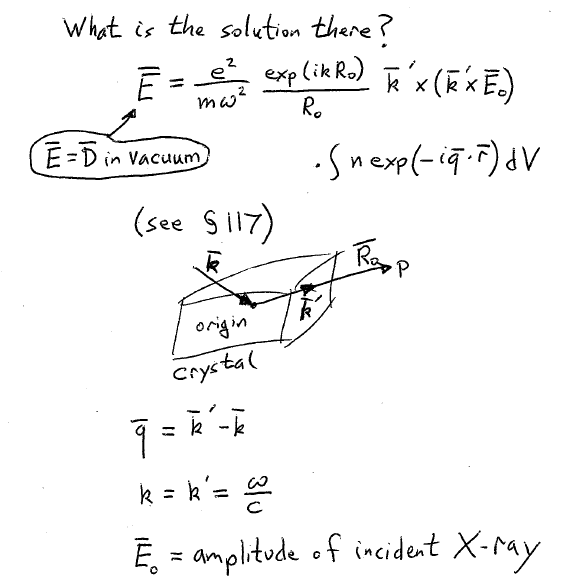 What is the solution there?
E̅ = e²/mω² exp(ikR₀)/R₀ k̅′ × (k̅′ × E̅₀)
E̅ = D̅ in vacuum
· ∫ n exp(-iq̅·r̅) dV
(see § 117)
k̅
R̅₀
P
k̅′
origin
crystal
q̅ = k̅′ - k̅
k = k′ = ω/c
E̅₀ = amplitude of incident X-ray